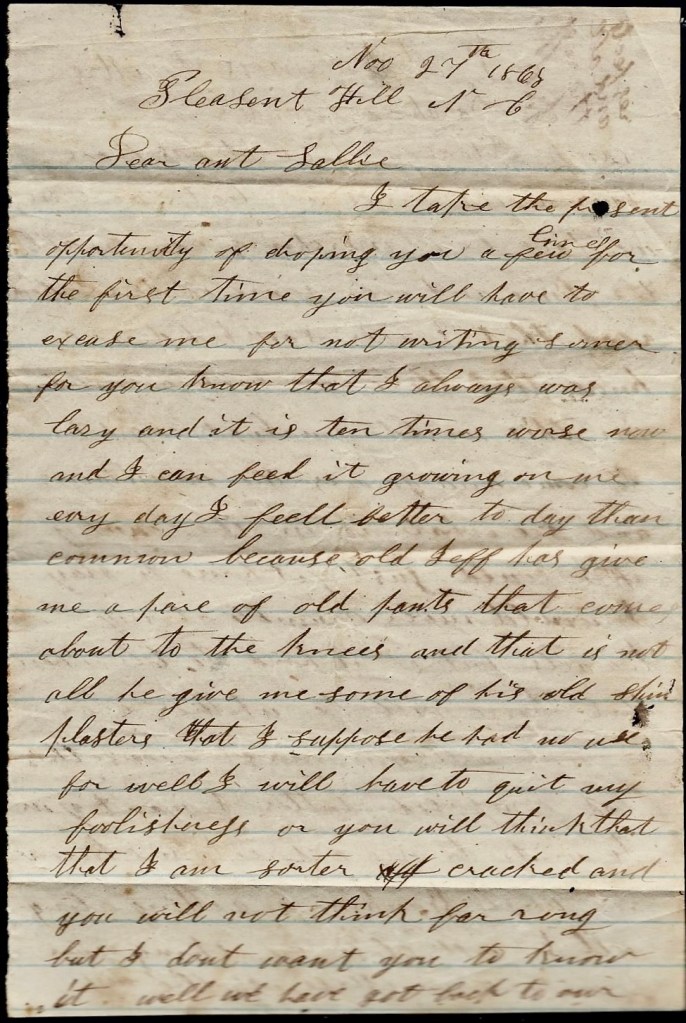 Nov 27th 1863
Pleasent Hill N C
Dear ant Sallie
I take the present
opportunity of droping you a few lines for
the first time you will have to
excuse me for not writing sooner
for you know that I always was
lazy and it is ten times worse now
and I can feel it growing on me
evry day I feell better to day than
common because old Jeff has give
me a pare of old pants that comes
about to the knees and that is not
all he give me some of his old shin
plasters that I suppose he had no use
for well I will have to quit my
foolishness or you will think that
that I am sorter cracked and
you will not think far rong
but I dont want you to know
it well we have got back to our